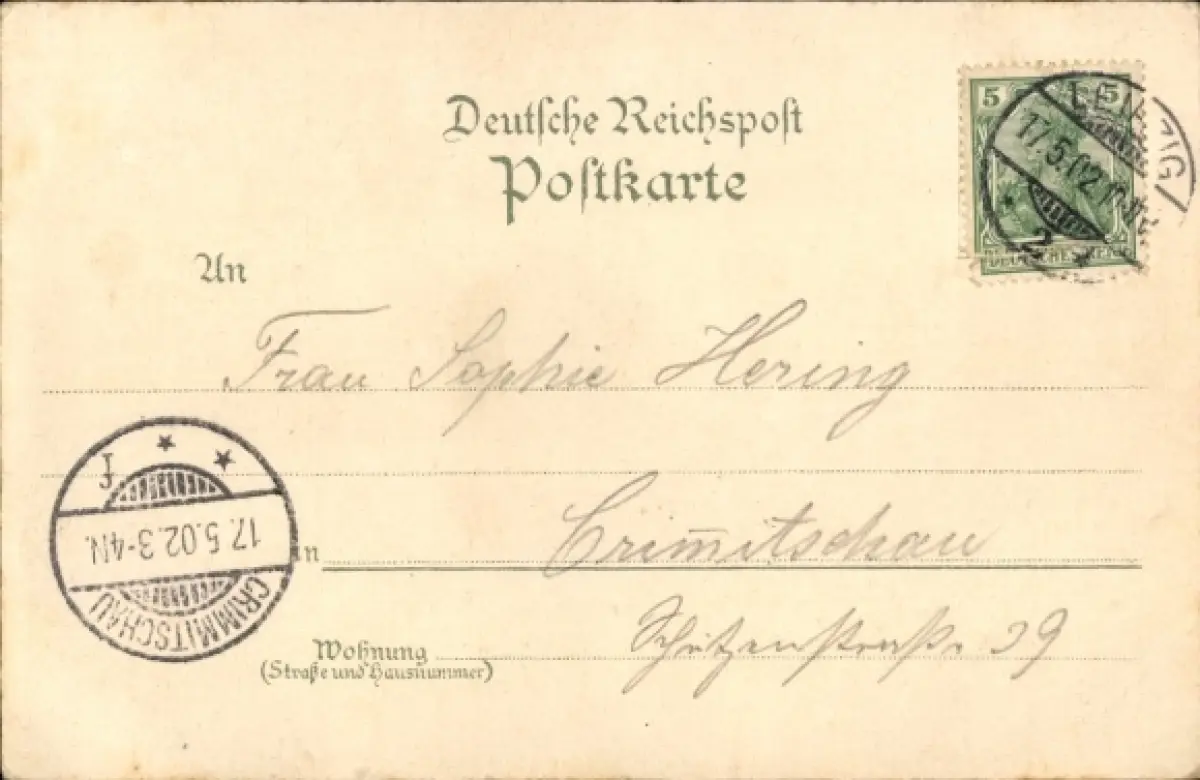 Deutsche Reichspost
Postkarte
5 5
DEUTSCHES REICH
LEIPZIG
17.5.02
2
An
Frau Sophie Hering
in
Crim̅itschau
Wohnung
(Straße und Hausnummer)
Schützenstraße 29
CRIMMITSCHAU
17.5.02.3-4N.